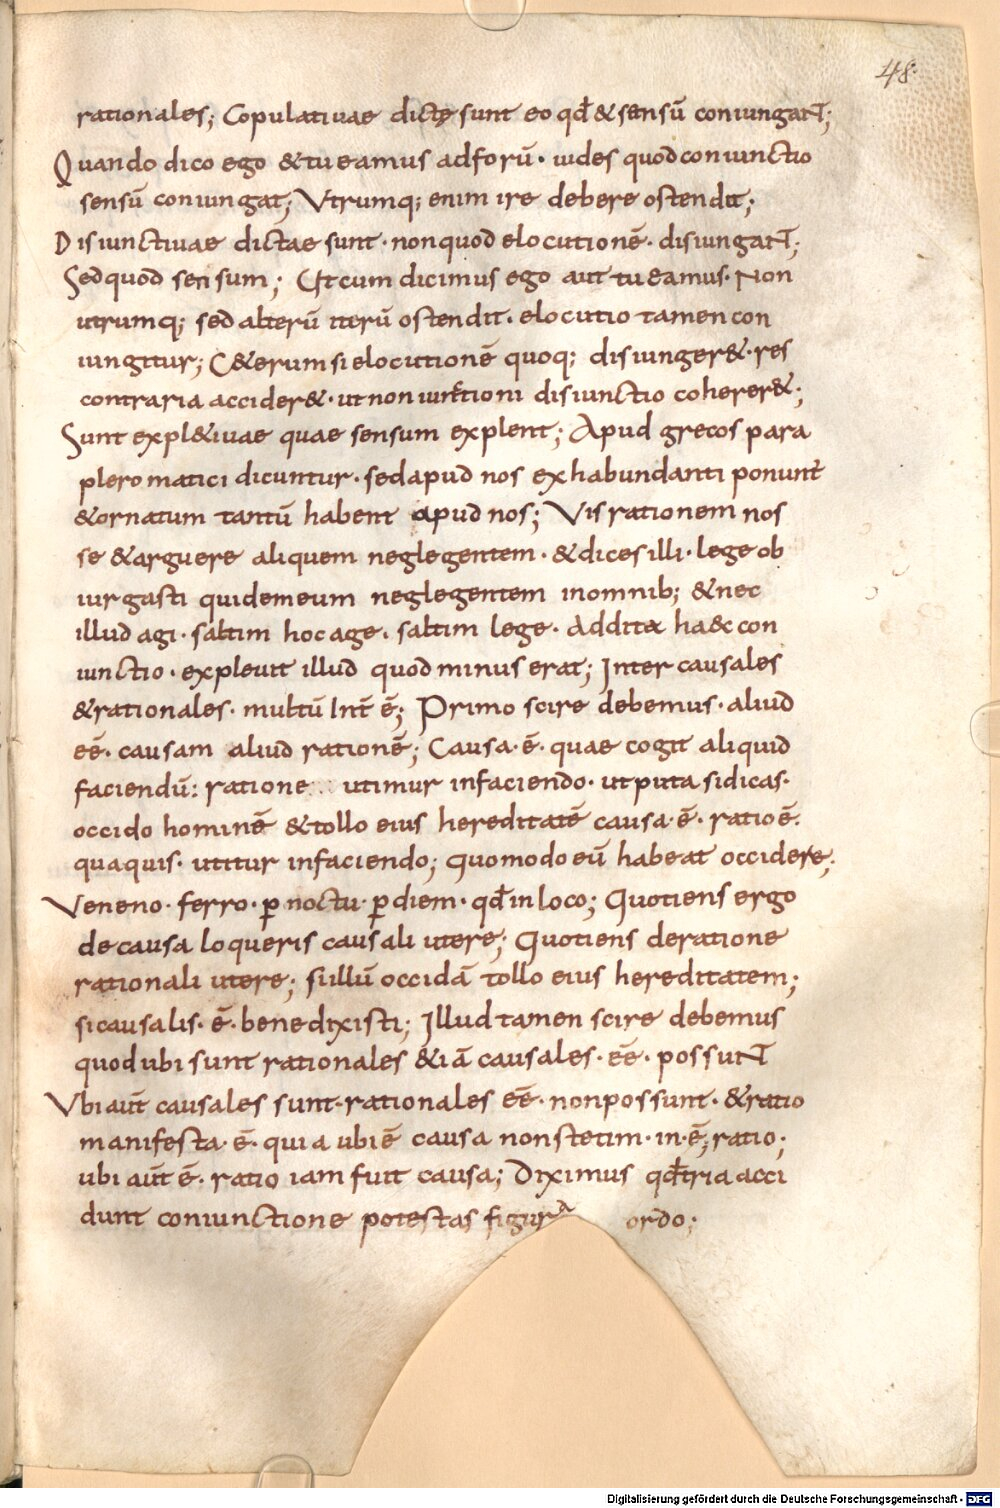 48.
rationales; Copulatiuae dictę sunt eo qđ & sensū coniungant;
Quando dico ego & tu eamus ad forū. uides quod coniunctio
sensū coniungat; Vtrumq; enim ire debere ostendit;
Disiunctiuae dictae sunt. non quod elocutionē. disiungant;
Sed quod sensum; Ut cum dicimus ego aut tu eamus. Non
utrumq; sed alterū iterū ostendit. elocutio tamen con
iungitur; C&erum si elocutionē quoq; disiunger&. res
contraria accider&. ut non iunctioni disiunctio coherer&;
Sunt expl&iuae quae sensum explent; Apud grecos para
pleromatici dicuntur. sed apud nos ex habundanti ponunt
& ornatum tantū habent apud nos; Vis rationem nos
se & arguere aliquem neglegentem. & dices illi. lege ob
iurgasti quidem eum neglegentem in omnib; & nec
illud agi. saltim hoc age. saltim lege. Addita haec con
iunctio. expleuit illud quod minus erat; Inter causales
& rationales. multū Int̄ ē; Primo scire debemus. aliud
eē. causam aliud rationē; Causa. ē. quae cogit aliquid
faciendū: ratione utimur in faciendo. ut puta si dicas.
occido hominē & tollo eius hereditatē causa. ē. ratio ē.
qua quis. utitur in faciendo; quomodo eū habeat occidere;
Veneno. ferro. ꝑ noctu. ꝑ diem. qđ in loco; Quotiens ergo
de causa loqueris causali utere; Quotiens de ratione
rationali utere; si illū occidā tollo eius hereditatem;
si causalis. ē. bene dixisti; Illud tamen scire debemus
quod ubi sunt rationales & iā causales. eē. possunt
Vbi aut̄ causales sunt. rationales eē. non possunt. & ratio
manifesta. ē. quia ubi ē causa non stetim. in. ē; ratio;
ubi aut̄ ē. ratio iam fuit causa; Diximus qđ tria acci
dunt coniunctione potestas figura ordo;
Digitalisierung gefördert durch die Deutsche Forschungsgemeinschaft - DFG